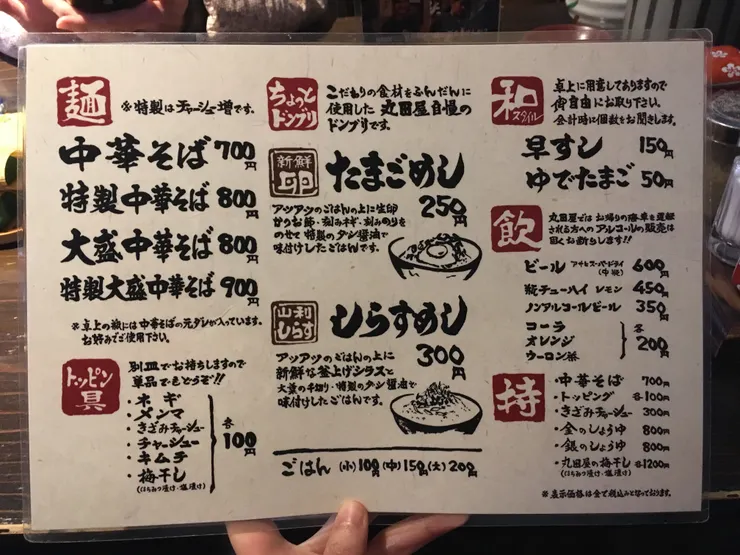 麺
※特製はチャーシュー増です。
中華そば 700円
特製中華そば 800円
大盛中華そば 800円
特製大盛中華そば 900円
※卓上の瓶には中華そばの元ダレが入っています。
お好みでご使用下さい。
トッピン具
別皿でお持ちしますので
単品でもどうぞ!!
・ネギ
・メンマ
・きざみチャーシュー
・チャーシュー
・キムチ
・梅干し
(はちみつ漬け・塩漬け)
各100円
ちょっとドンブリ
こだわりの食材をふんだんに
使用した 丸田屋自慢の
ドンブリです。
新鮮卵
たまごめし
250円
アツアツのごはんの上に生卵
かつお節・刻みネギ・刻みのりを
のせて 特製のダシ醤油で
味付けしたごはんです。
山利しらす
しらすめし
300円
アツアツのごはんの上に
新鮮な釜上げシラスと
大葉の千切り・特製のダシ醤油で
味付けしたごはんです。
ごはん (小)100円 (中)150円 (大)200円
和スタイル
卓上に用意してありますので
御自由にお取り下さい。
会計時に個数をお聞きします。
早すし 150円
ゆでたまご 50円
飲
丸田屋では お帰りの際 車を運転
される方へのアルコールの販売は
固くお断りします!!
ビール アサヒスーパードライ(中瓶) 600円
缶チューハイ レモン 450円
ノンアルコールビール 350円
コーラ
オレンジ
ウーロン茶
各200円
持
・中華そば 700円
・トッピング 各100円
・きざみチャーシュー 300円
・金のしょうゆ 800円
・銀のしょうゆ 800円
・丸田屋の梅干し 各1200円
(はちみつ漬け・塩漬け)
※表示価格は全て税込みとなっております。